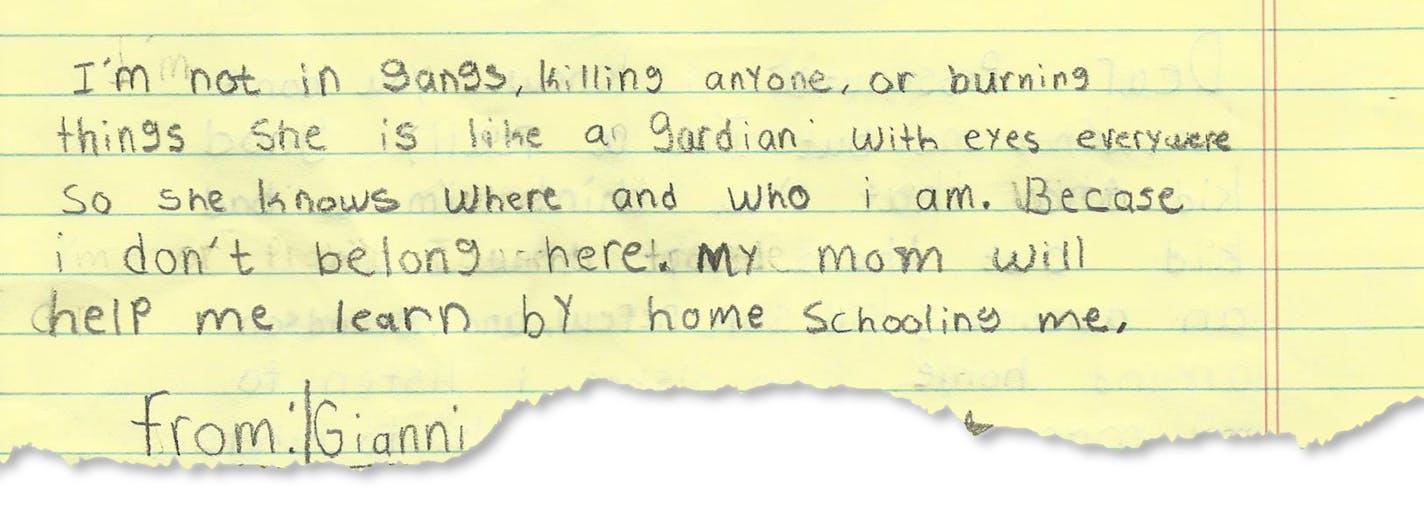 I'm not in gangs, killing anyone, or burning
things She is like a gardian with eyes everywere
So she knows where and who i am. Becase
i don't belong here. My mom will
help me learn by home schooling me.
From: Gianni